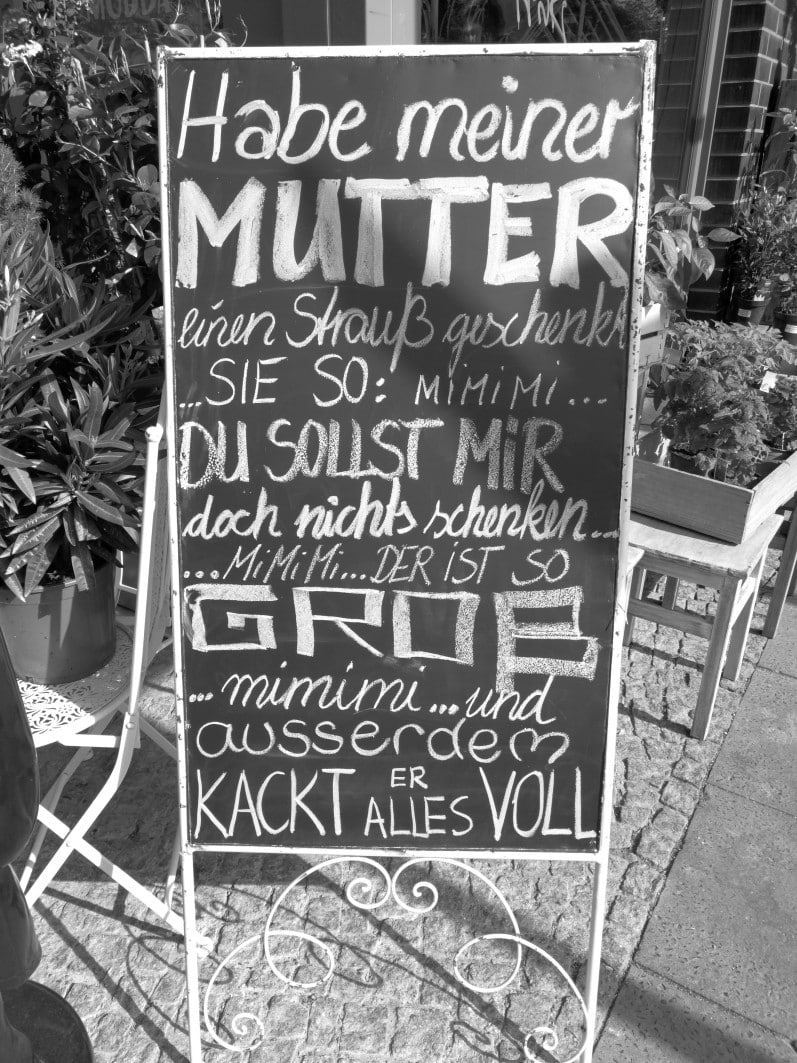 Habe meiner
MUTTER
einen Strauß geschenkt
...SIE SO: MiMiMi...
DU SOLLST MiR
doch nichts schenken...
...MiMiMi...DER iST SO
GROß
...mimimi...und
ausserdem
KACKT ER ALLES VOLL